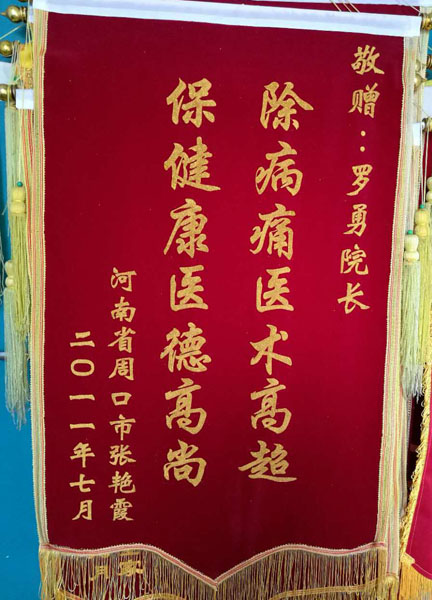 敬赠：罗勇院长
除病痛医术高超
保健康医德高尚
河南省周口市张艳霞
二〇一一年七月